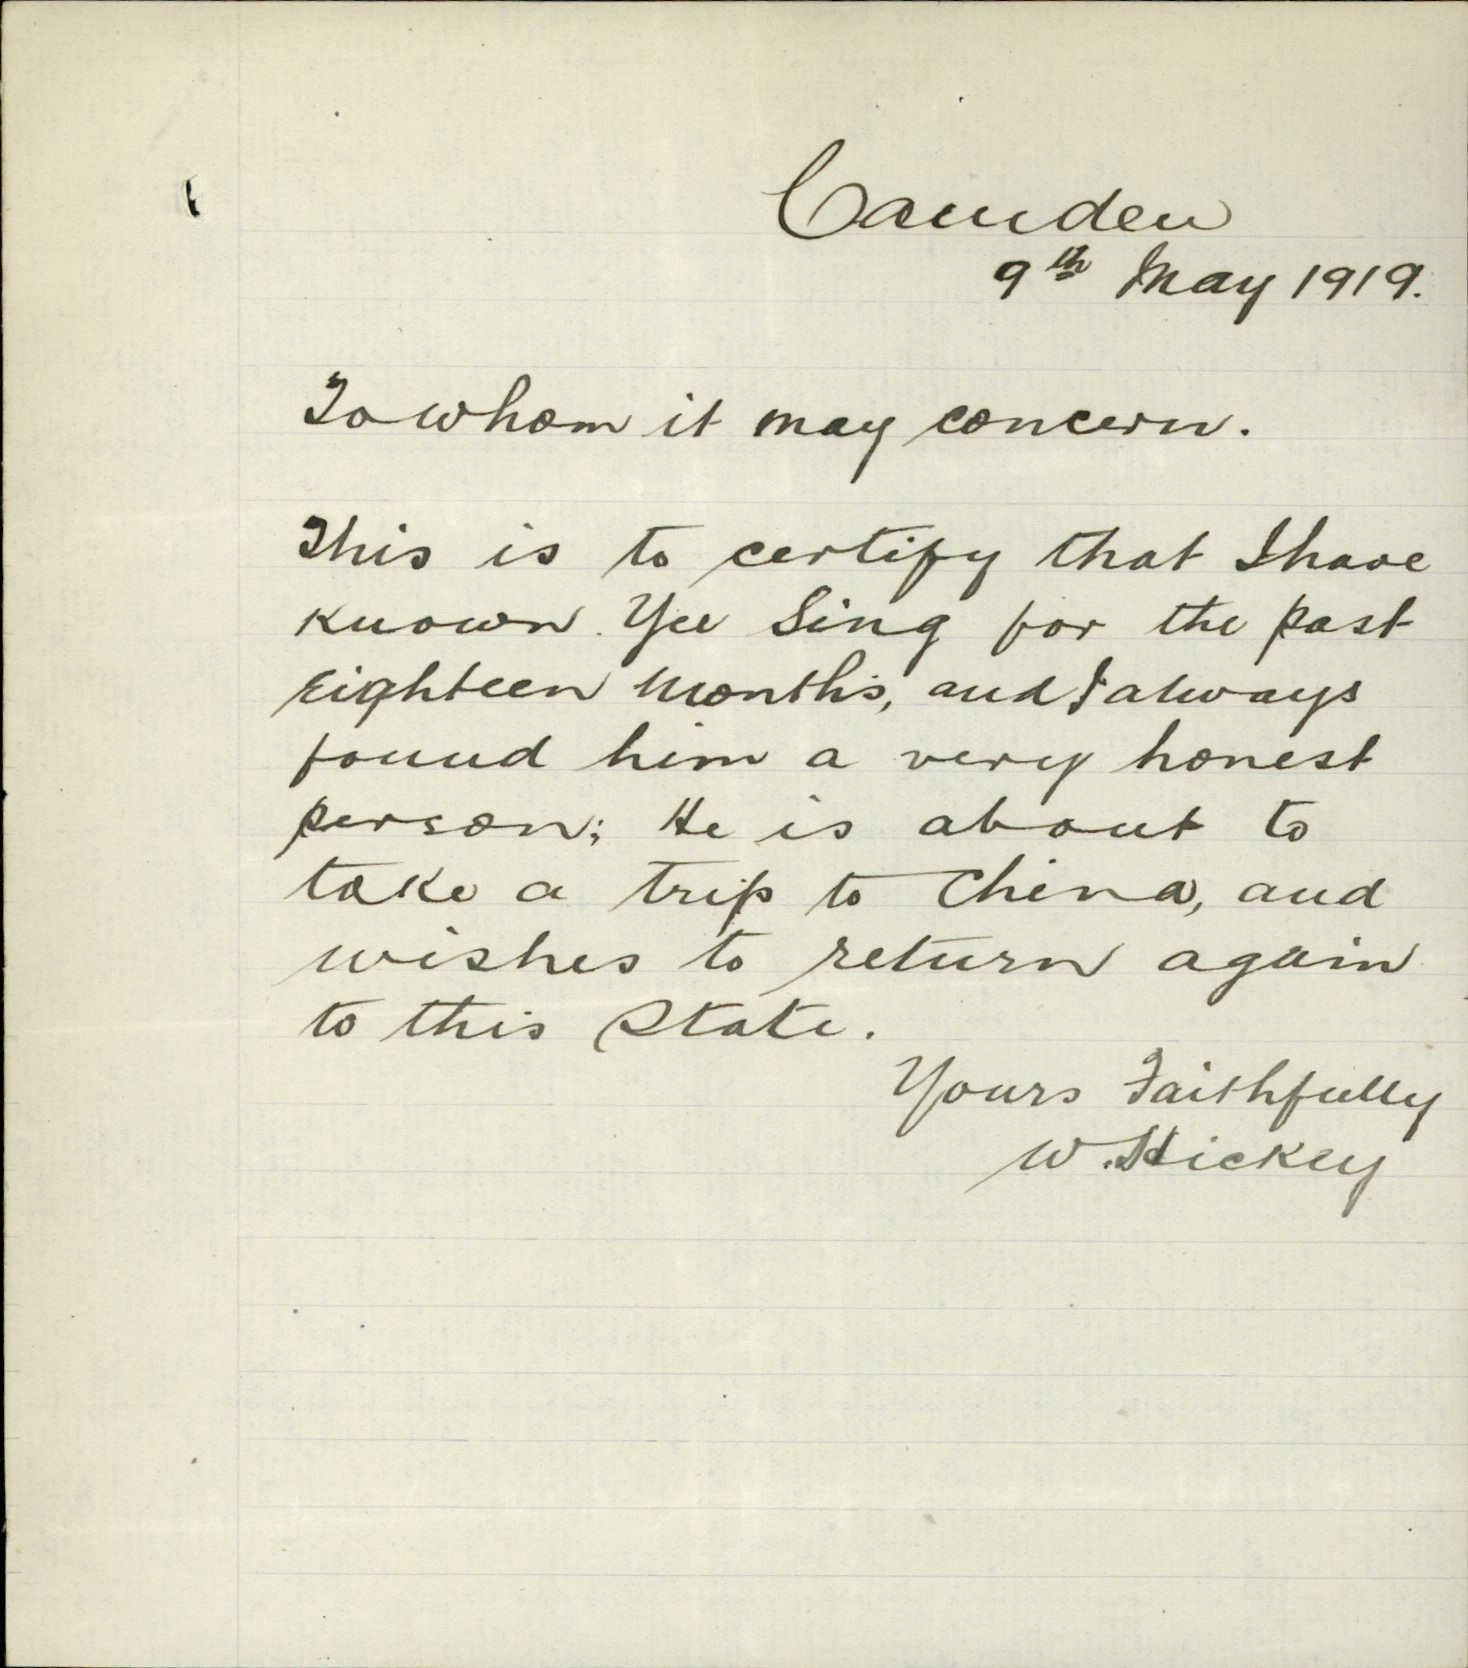 Camden
9th May 1919.
To whom it may concern.
This is to certify that I have
known Yee Sing for the past
eighteen months, and I always
found him a very honest
person; He is about to
take a trip to China, and
wishes to return again
to this State.
Yours Faithfully
W. Hickey